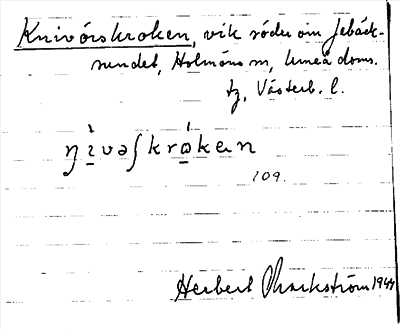 Knivörskroken, vik söder om Jebäck-
sundet, Holmöns sn, Umeå doms.
tg, Västerb. l.
ŋìvəʃkrókęn
109.
Herbert Markström 1944